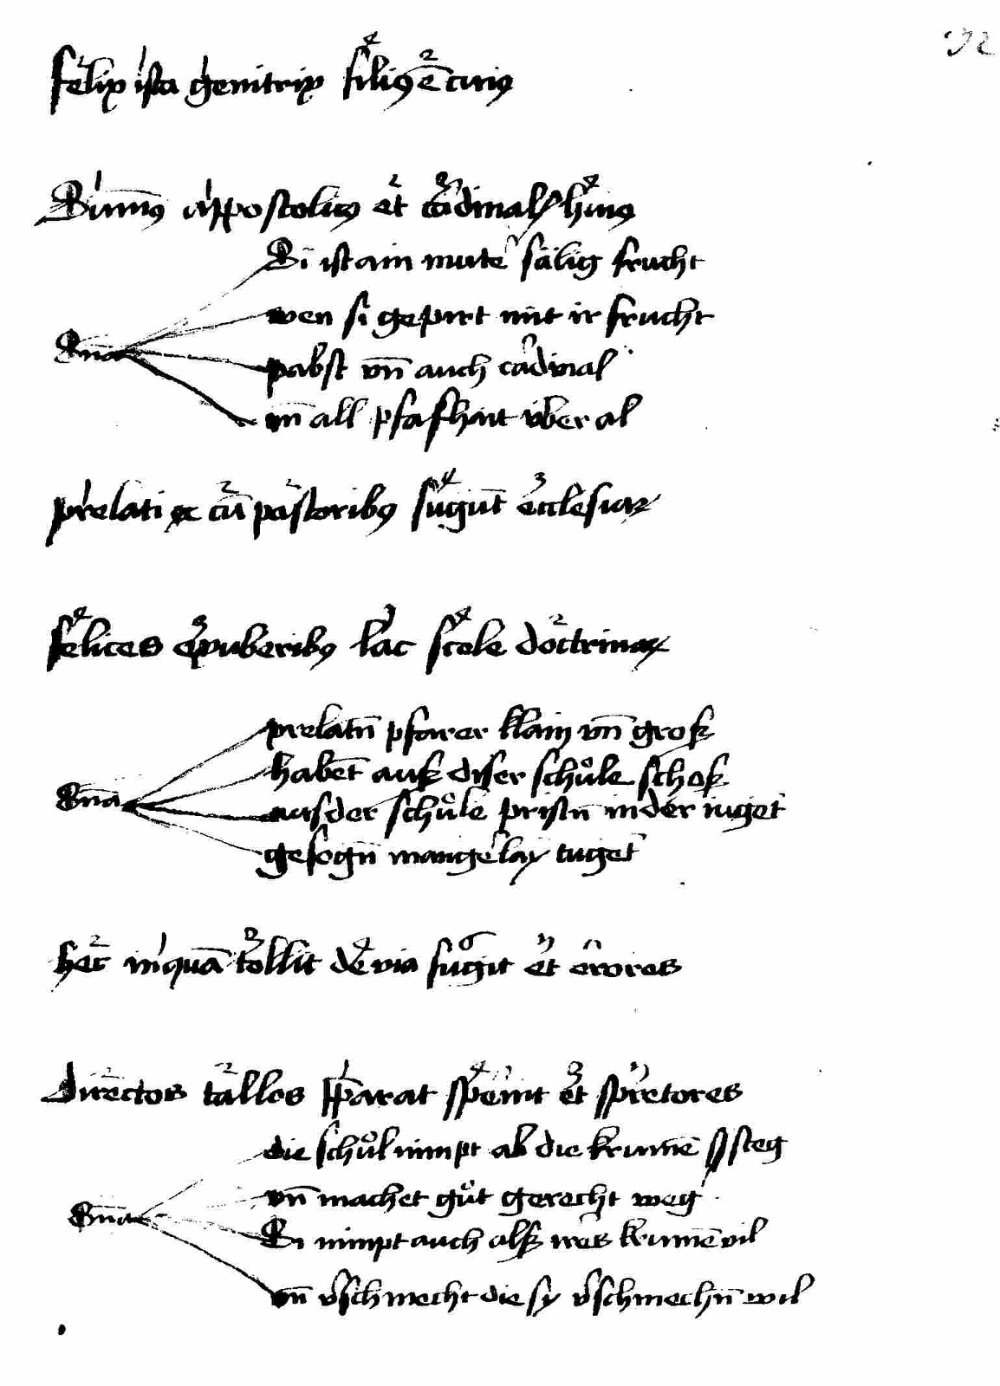 92
felix ista genitrix filiꝰ ē cuiꝰ
Sūmꝰ appostolicꝰ et cardinalꝭ huiꝰ
Si ist ain muter sälig frucht
wen si gepirt mit ir frucht
Sn̄ia
pabst vn̄ auch cardinal
vn̄ all pfafhait vber al
prelati ac cū pastoribꝰ sugūt ecclesiaꝝ
felices epuberibꝰ lac scole doctrinaꝝ
prelatn̄ pfarer klain vn̄ groß
habēt auß diser schůle schoß
Sn̄ia
aus der schůle pristn̄ in der iuget
gesogn̄ mangerlay tuget
hec inquā tollit de via fugit et erores
directos calles p̄parat spernit et spretores
die schůl nimpt ab die krumē steg
vn̄ machet gůt gerecht weg
Sn̄ia
Si nimpt auch alß wes krumē vil
vn̄ v̄schmecht die sy v̄schmechn̄ wil